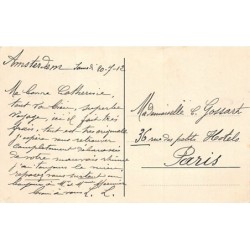 Amsterdam Lundi 20-7-12
Ma Bonne Catherine
tout va bien, superbe
voyage, ici il fait très
frais, tout est très original
j'espère vous retrouver
complètement débarrassée
de votre mauvais rhume
reposez vous
Mademoiselle C. Gossart
36 rue des petits Hotels
Paris